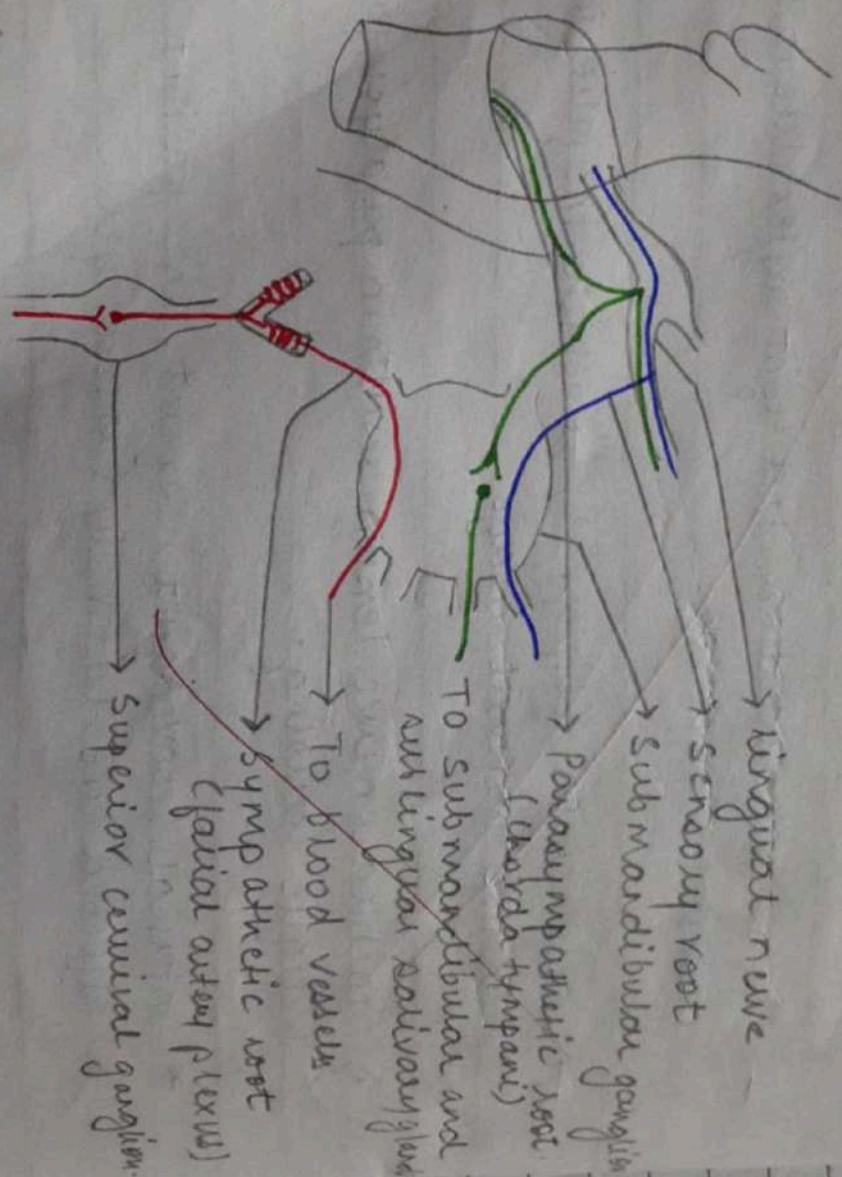 Lingual nerve
Sensory root
Submandibular ganglion
Parasympathetic root
(chorda tympani)
To submandibular and
sublingual salivary glands
To blood vessels
Sympathetic root
(facial artery plexus)
Superior cervical ganglion.